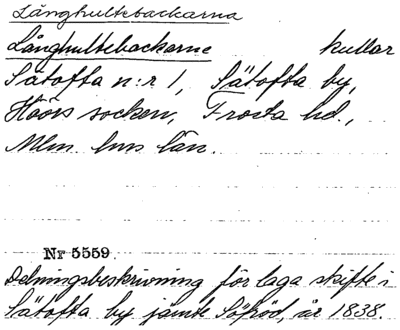 Långhultebackarna
Långhultebackarne kullar
Sätofta n:r 1, Sätofta by,
Höörs socken, Frosta hd.,
Mlm. hus län.
Nr 5559
Delningsbeskrivning för laga skifte i
Sätofta by jämte Söfröd, år 1838.